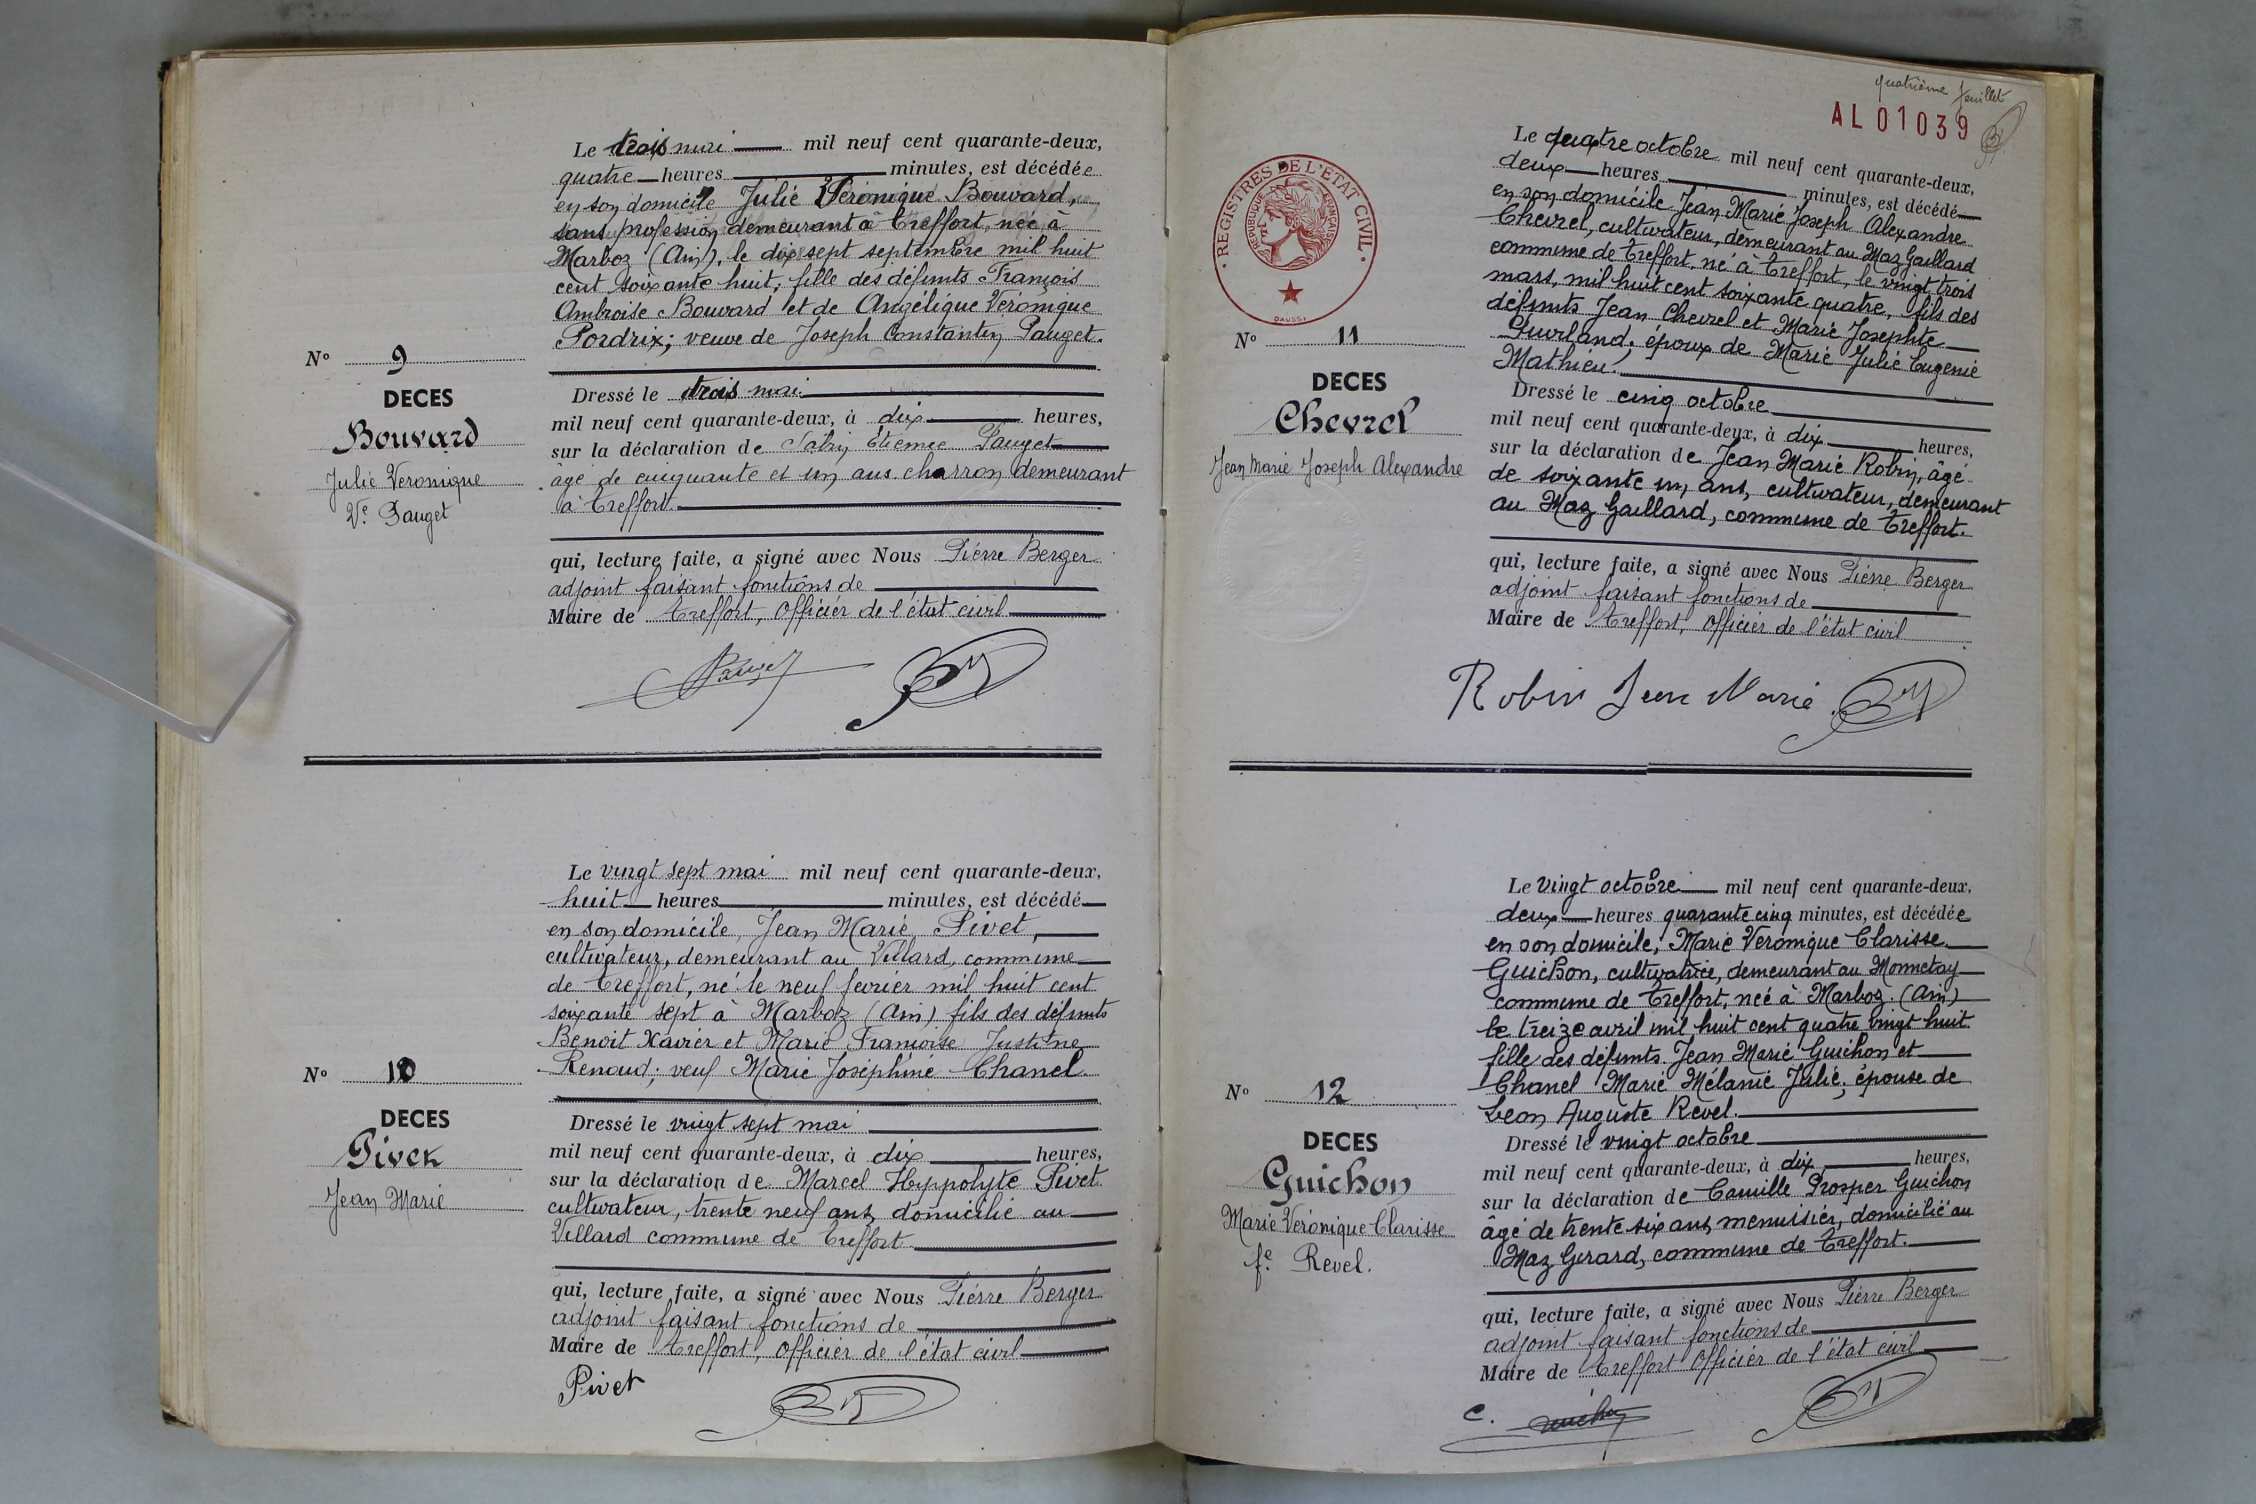 Le trois mai mil neuf cent quarante-deux,
quatre heures minutes, est décédée
en son domicile Julie Véronique Bouvard,
sans profession demeurant à Treffort, née à
Marboz (Ain), le dix sept septembre mil huit
cent soixante huit, fille des défunts François
Ambroise Bouvard et de Angélique Véronique
Pordrix; veuve de Joseph Constantin Pauget.
N° 9
DECES
Bouvard
Julie Veronique
Ve Pauget
Dressé le trois mai
mil neuf cent quarante-deux, à dix heures,
sur la déclaration de Etienne Pauget
âgé de cinquante et un ans charron demeurant
à Treffort.
qui, lecture faite, a signé avec Nous Pierre Berger
adjoint faisant fonctions de
Maire de Treffort, Officier de l'état civil
Pauget
Le vingt sept mai mil neuf cent quarante-deux,
huit heures minutes, est décédé
en son domicile, Jean Marie Pivet,
cultivateur, demeurant au Villard, commune
de Treffort, né le neuf février mil huit cent
soixante sept à Marboz (Ain) fils des défunts
Benoit Xavier et Marie Françoise Justine
Renoud; veuf Marie Joséphine Chanel
N° 10
DECES
Pivet
Jean Marie
Dressé le vingt sept mai
mil neuf cent quarante-deux, à dix heures,
sur la déclaration de Marcel Hyppolyte Pivet
cultivateur, trente neuf ans, domicilié au
Villard commune de Treffort
qui, lecture faite, a signé avec Nous Pierre Berger
adjoint faisant fonctions de
Maire de Treffort, Officier de l'état civil
Pivet
quatrième feuillet
AL 01039
REGISTRES DE L'ETAT CIVIL
REPUBLIQUE FRANÇAISE
DAUSSY
Le quatre octobre mil neuf cent quarante-deux,
deux heures minutes, est décédé
en son domicile Jean Marie Joseph Alexandre
Chevrel, cultivateur, demeurant au Maz Gaillard
commune de Treffort, né à Treffort, le vingt trois
mars, mil huit cent soixante quatre, fils des
défunts Jean Chevrel et Marie Josephte
Puvilland, époux de Marie Julie Eugenie
Mathieu.
N° 11
DECES
Chevrel
Jean Marie Joseph Alexandre
Dressé le cinq octobre
mil neuf cent quarante-deux, à dix heures,
sur la déclaration de Jean Marie Robin, âgé
de soixante un ans, cultivateur, demeurant
au Maz Gaillard, commune de Treffort.
qui, lecture faite, a signé avec Nous Pierre Berger
adjoint faisant fonctions de
Maire de Treffort, Officier de l'état civil
Robin Jean Marie
Le vingt octobre mil neuf cent quarante-deux,
deux heures quarante cinq minutes, est décédée
en son domicile, Marie Veronique Clarisse
Guichon, cultivatrice, demeurant au Monnetay
commune de Treffort, née à Marboz (Ain)
le treize avril mil huit cent quatre vingt huit
fille des défunts Jean Marie Guichon et
Chanel Marie Mélanie Julie, épouse de
Léon Auguste Revel.
N° 12
DECES
Guichon
Marie Véronique Clarisse
fe Revel.
Dressé le vingt octobre
mil neuf cent quarante-deux, à dix heures,
sur la déclaration de Camille Prosper Guichon
âgé de trente six ans, menuisier, domicilié au
Maz Gerard, commune de Treffort.
qui, lecture faite, a signé avec Nous Pierre Berger
adjoint faisant fonctions de
Maire de Treffort Officier de l'état civil
C. Guichon